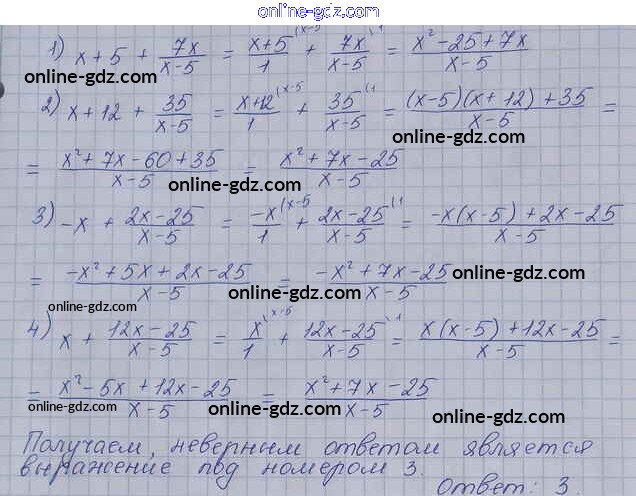 online-gdz.com
1) x+5 + 7x/(x-5) = (x+5)/1 (x-5 + 7x/(x-5) (1 = (x²-25+7x)/(x-5)
online-gdz.com online-gdz.com
2) x+12 + 35/(x-5) = (x+12)/1 (x-5 + 35/(x-5) (1 = ((x-5)(x+12)+35)/(x-5) =
online-gdz.com
= (x²+7x-60+35)/(x-5) = (x²+7x-25)/(x-5)
online-gdz.com online-gdz.com
3) -x + (2x-25)/(x-5) = -x/1 (x-5 + (2x-25)/(x-5) (1 = (-x(x-5)+2x-25)/(x-5)
= (-x²+5x+2x-25)/(x-5) = (-x²+7x-25)/(x-5)
online-gdz.com
online-gdz.com online-gdz.com
online-gdz.com
4) x + (12x-25)/(x-5) = x/1 (x-5 + (12x-25)/(x-5) (1 = (x(x-5)+12x-25)/(x-5) =
= (x²-5x+12x-25)/(x-5) = (x²+7x-25)/(x-5)
online-gdz.com online-gdz.com online-gdz.com
Получаем, неверным ответом является
выражение под номером 3.
Ответ: 3.